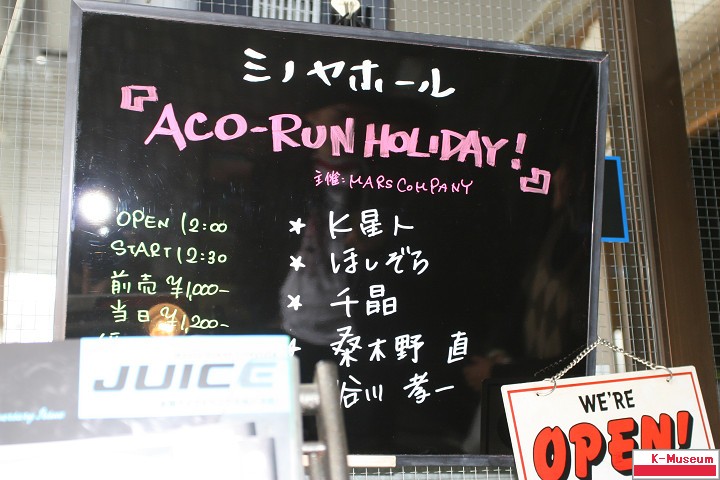 ミノヤホール
『ACO-RUN HOLIDAY!』
主催:MARS COMPANY
OPEN 12:00
START 12:30
前売 ¥1,000-
当日 ¥1,200-
★ K星人
★ ほしぞら
★ 千晶
★ 桑木野 直
谷川 孝一
JUICE
WE'RE
OPEN!
K-Museum